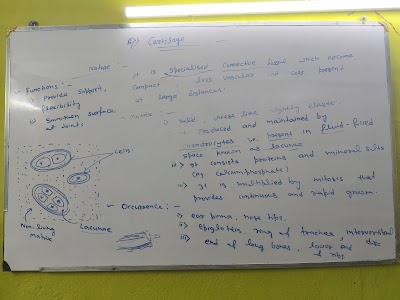 B) Cartilage
Nature :-
it is specialised connective tissue which become
compact & less vascular as cells present
at large distances.
Functions :-
i) provide support,
flexibility
ii) Smoothen surface
at Joints
Matrix :-
i) solid, cheese like, slightly elastic
produced and maintained by
chondrocytes is present in fluid-filled
space known as lacunae
ii) it consists proteins and mineral salts
(eg. calcium phosphate)
iii) It is multiplied by mitosis that
provides continuous and rapid grown.
Cells
Non living
matrix
Lacunae
Occurrence :-
i) ear pinna, nose tips.
ii) epiglottis, ring of trachea, intervertebral disc
iii) end of long bones, lower end
of ribs.